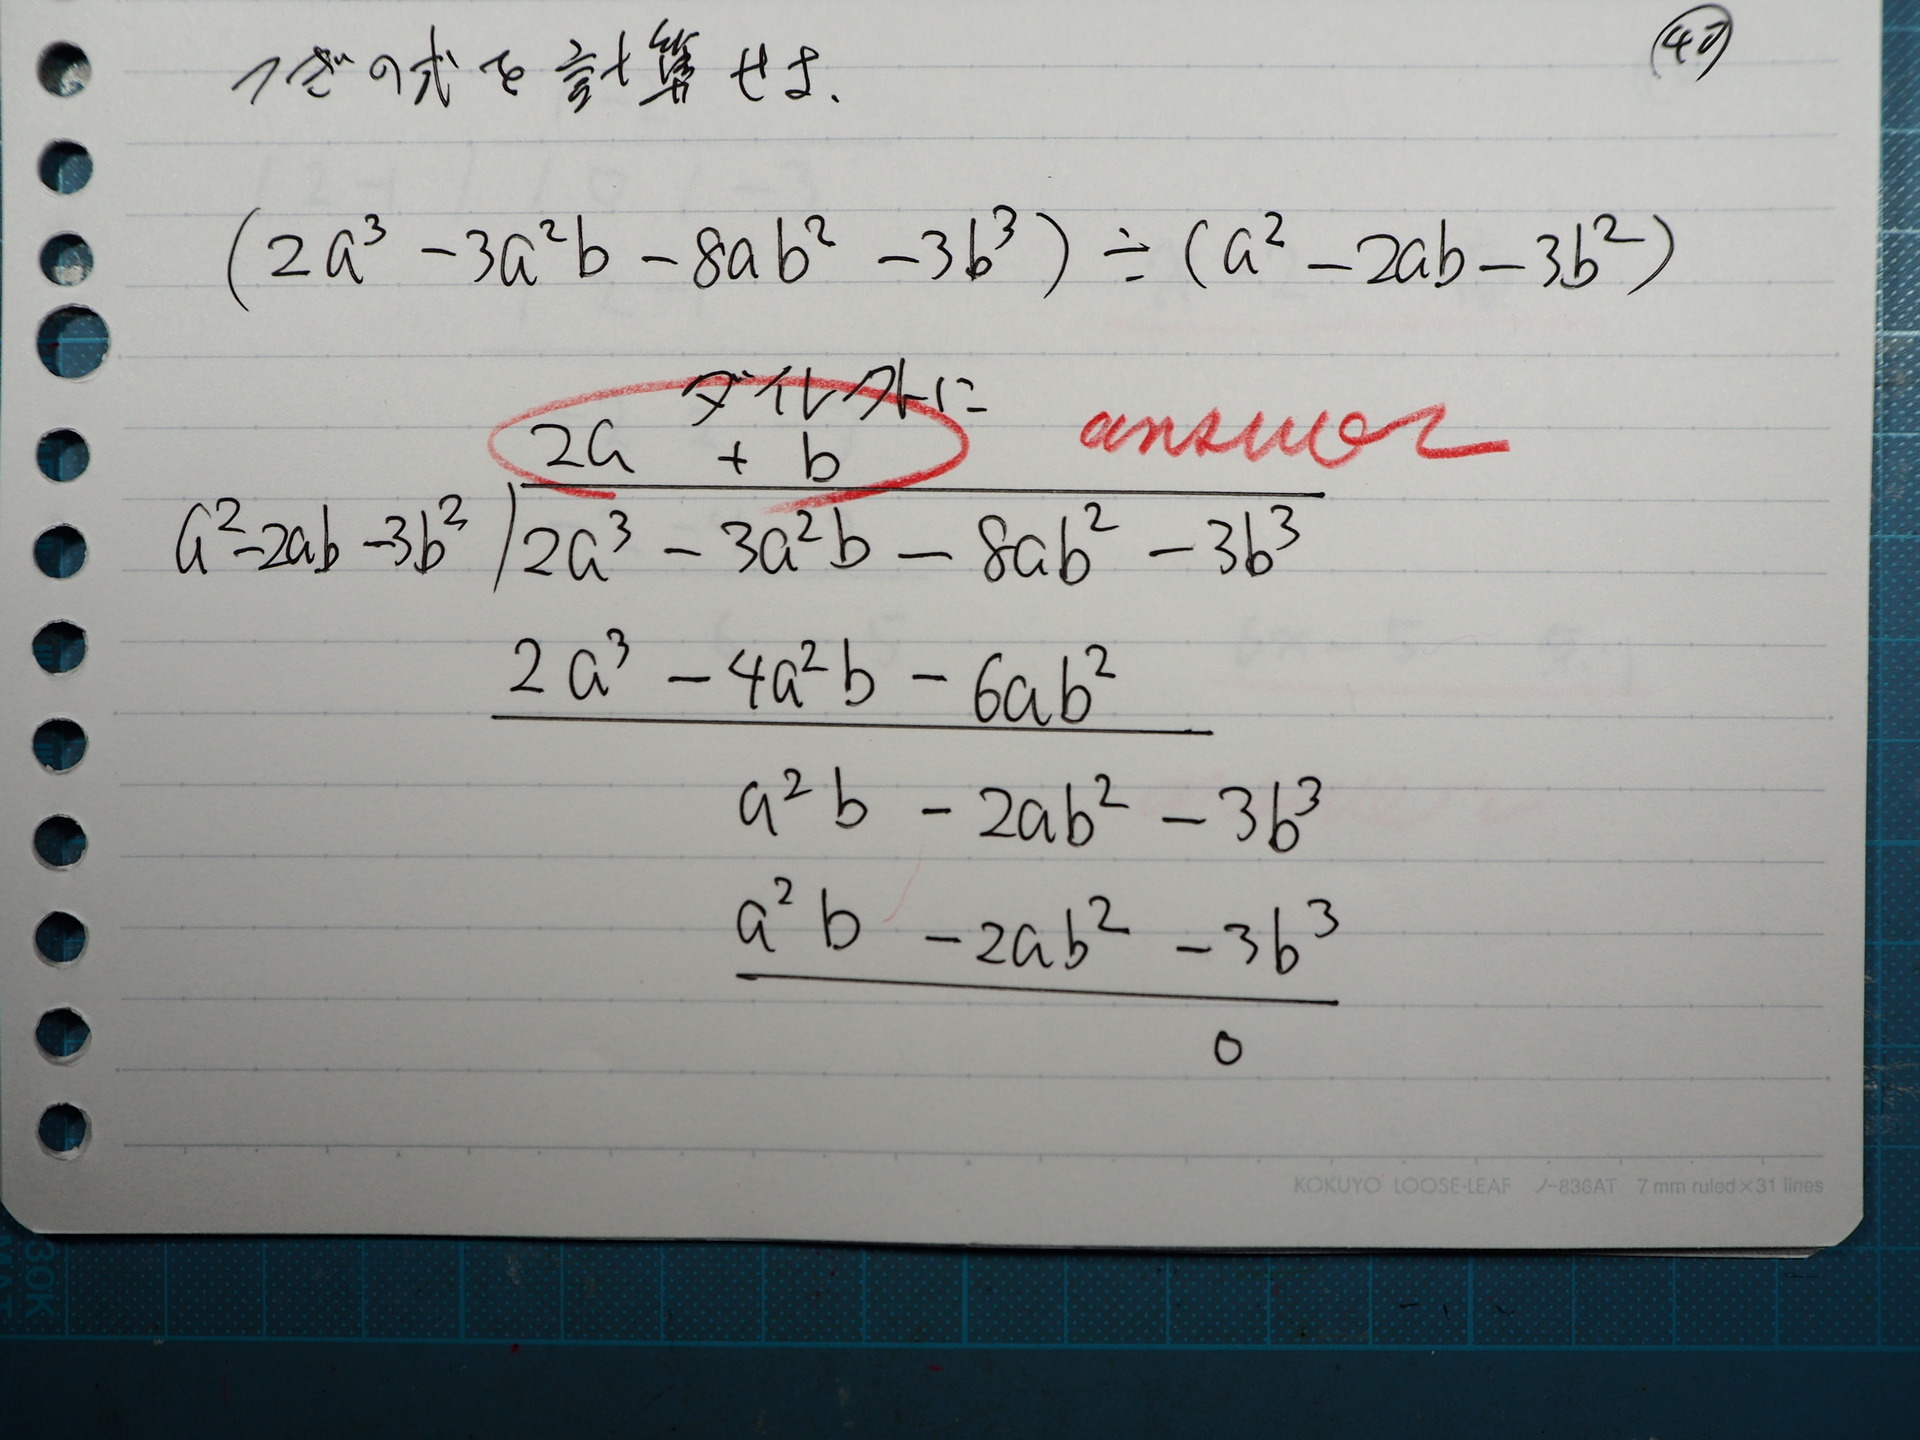 つぎの式を計算せよ.
(2a³ -3a²b -8ab² -3b³) ÷ (a² -2ab -3b²)
ダイレクトに
2a + b answer
a²-2ab-3b² ) 2a³ - 3a²b - 8ab² - 3b³
2a³ - 4a²b - 6ab²
a²b - 2ab² - 3b³
a²b - 2ab² - 3b³
0
KOKUYO LOOSE-LEAF ノ-836AT 7 mm ruled×31 lines